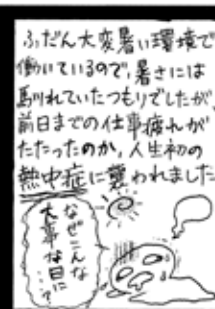 ふだん大変暑い環境で
働いているので、暑さには
馴れていたつもりでしたが、
前日までの仕事疲れが
たたったのか、人生初の
熱中症に襲われました
なぜこんな
大事な日に
……?